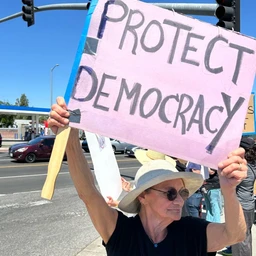 PROTECT
DEMOCRACY